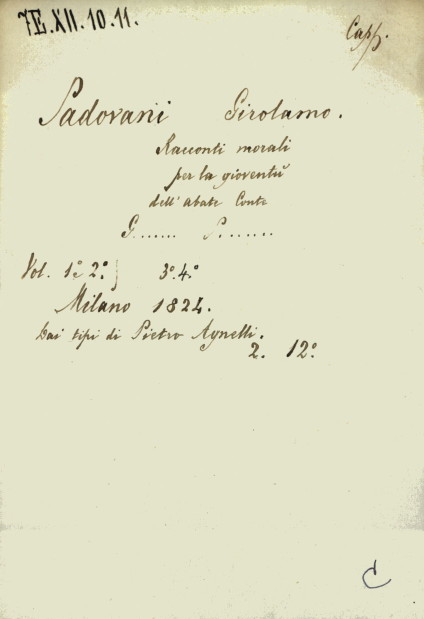 7E.XII.10.11.
Capp.
Padovani Girolamo.
Racconti morali
per la gioventù
dell'abate Conte
G...... P......
Vol. 1º 2º} 3º. 4.º
Milano 1824.
Dai tipi di Pietro Agnelli.
2. 12º
C